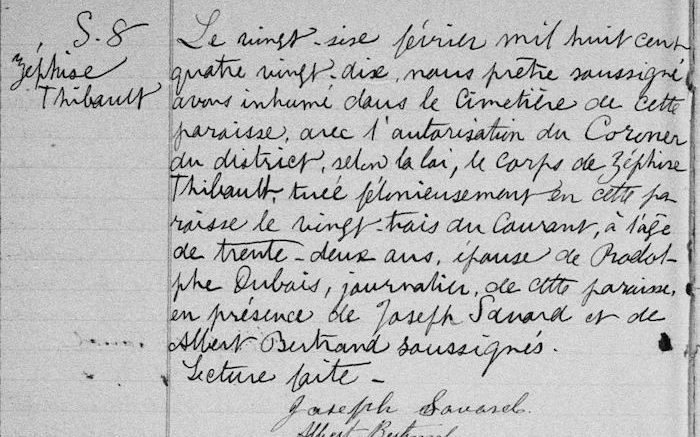 S. 8
Zéphise
Thibault
Le vingt-sixe février mil huit cent
quatre vingt-dix, nous prêtre soussigné
avons inhumé dans le Cimetière de cette
paroisse, avec l'autorisation du Coroner
du district, selon la loi, le corps de Zéphise
Thibault, tuée félonieusement en cette pa
roisse le vingt-trois du Courant, à l'âge
de trente-deux ans, épouse de Rodol-
phe Dubois, journalier, de cette paroisse,
en présence de Joseph Savard et de
Albert Bertrand soussignés.
Lecture faite -
Joseph Savard.
Albert Bertrand